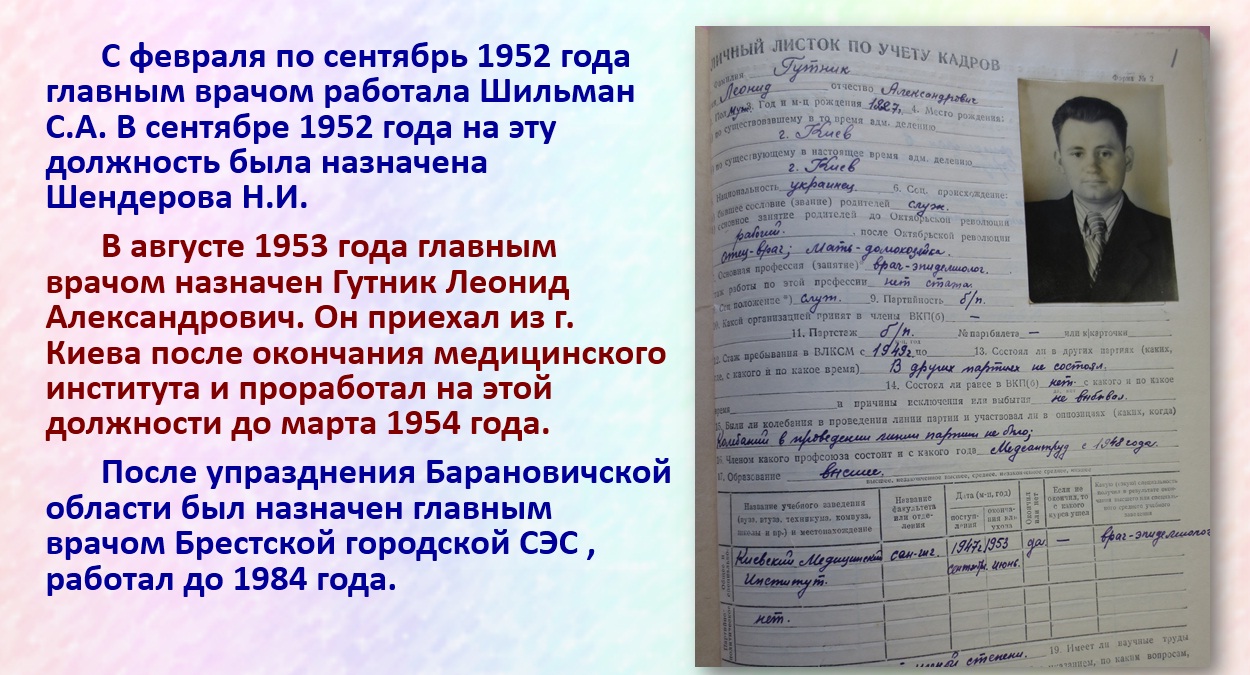 С февраля по сентябрь 1952 года
главным врачом работала Шильман
С.А. В сентябре 1952 года на эту
должность была назначена
Шендерова Н.И.
В августе 1953 года главным
врачом назначен Гутник Леонид
Александрович. Он приехал из г.
Киева после окончания медицинского
института и проработал на этой
должности до марта 1954 года.
После упразднения Барановичской
области был назначен главным
врачом Брестской городской СЭС ,
работал до 1984 года.
ЛИЧНЫЙ ЛИСТОК ПО УЧЕТУ КАДРОВ
1
Форма № 2
Фамилия Гутник
Леонид отчество Александрович
Пол муж. 3. Год и м-ц рождения 1927г. 4. Место рождения:
по существовавшему в то время адм. делению
г. Киев
по существующему в настоящее время адм. делению
г. Киев
Национальность украинец. 6. Соц. происхождение:
бывшее сословие (звание) родителей служ.
основное занятие родителей до Октябрьской революции
рабочий. после Октябрьской революции
Отец-врач; Мать-домохозяйка.
Основная профессия (занятие) врач-эпидемиолог.
работы по этой профессии нет стажа.
Соц. положение *) служ. 9. Партийность б/п.
10. Какой организацией принят в члены ВКП(б) —
11. Партстаж б/п. № партбилета — или к/карточки
12. Стаж пребывания в ВЛКСМ с 1949г. по 13. Состоял ли в других партиях (каких,
где, с какого и по какое время) В других партиях не состоял.
14. Состоял ли ранее в ВКП(б) нет. с какого и по какое
время и причины исключения или выбытия не выбывал.
15. Были ли колебания в проведении линии партии и участвовал ли в оппозициях (каких, когда)
Колебаний в проведении линии партии не было;
16. Членом какого профсоюза состоит и с какого года Медсантруд с 1948 года.
17. Образование высшее.
Название учебного заведения Название Дата (м-ц, год) Окончил Если не
(вуза, втуза, техникума, комвуза, факультета поступ- оконча- или нет окончил, то
школы и пр.) и местонахождение или отде- ления ния или с какого
ления ухода курса ушел
Киевский Медицинский сан-гиг. 1947г. 1953 да — врач-эпидемиолог
Институт. сентябр. июнь.
нет.
степени. 19. Имеет ли научные труды
по каким вопросам,